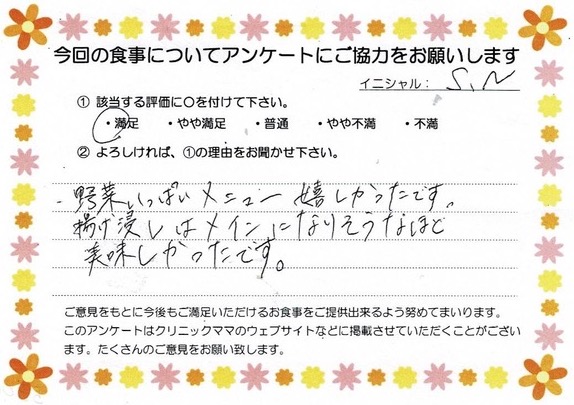 今回の食事についてアンケートにご協力をお願いします
イニシャル： S.N
① 該当する評価に〇を付けて下さい。
・満足 ・やや満足 ・普通 ・やや不満 ・不満
② よろしければ、①の理由をお聞かせ下さい。
・野菜いっぱいメニュー嬉しかったです。
揚げ浸しはメインになりそうなほど
美味しかったです。
ご意見をもとに今後もご満足いただけるお食事をご提供出来るよう努めてまいります。
このアンケートはクリニックママのウェブサイトなどに掲載させていただくことがござい
ます。たくさんのご意見をお願い致します。